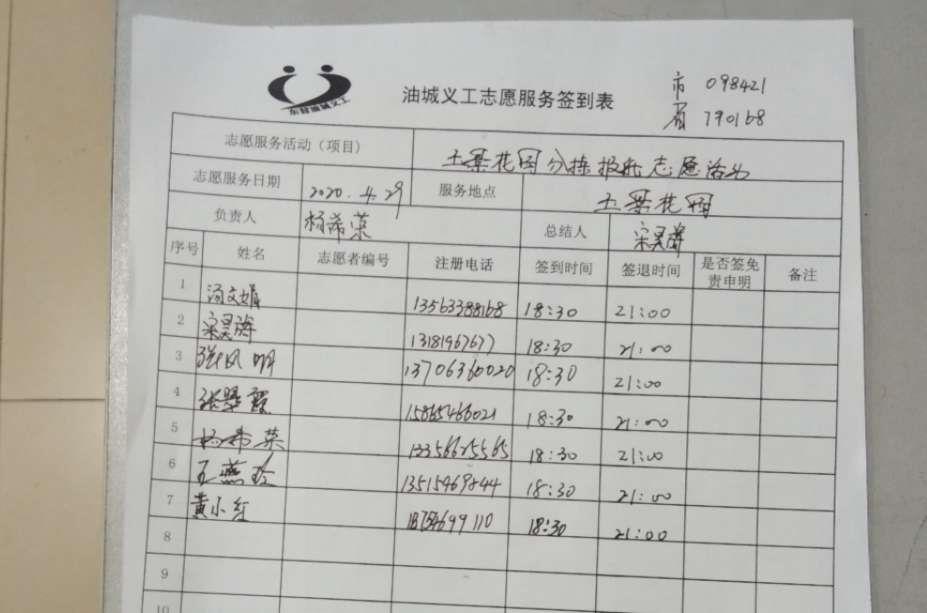 油城义工志愿服务签到表
市 098421
省 790168
志愿服务活动（项目） 分拣报纸志愿活动
志愿服务日期 2020.4.29 服务地点
负责人 杨希荣 总结人 宋昊海
序号 姓名 志愿者编号 注册电话 签到时间 签退时间 是否签免责申明 备注
1 汤文娟 13563388168 18:30 21:00
2 宋昊海 1318196767 18:30 21:00
3 13706360020 18:30 21:00
4 15865466021 18:30 21:00
5 杨希荣 18:30 21:00
6 王燕玲 18:30 21:00
7 黄小红 18:30 21:00
8
9
10